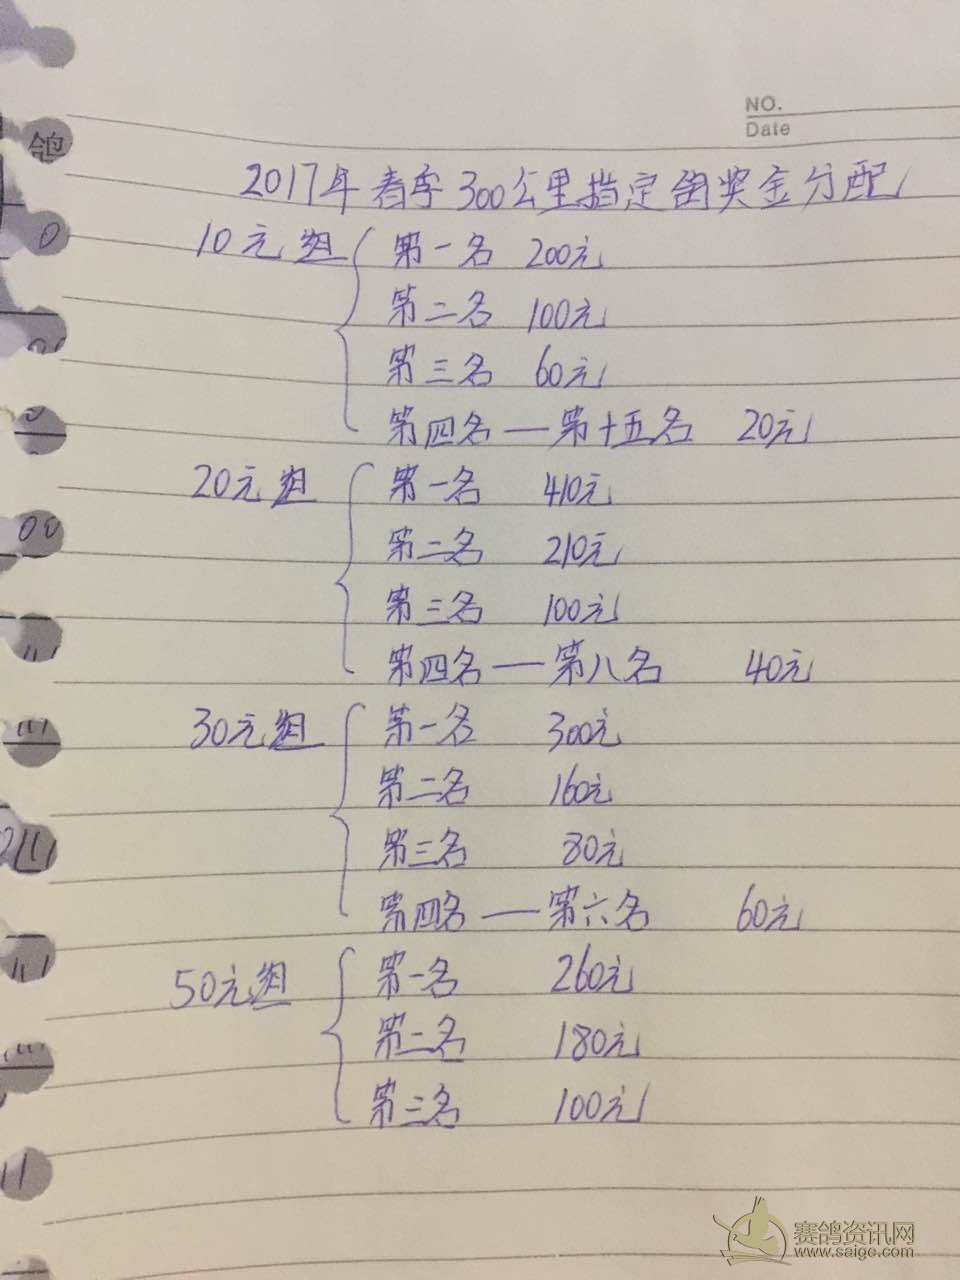 NO.
Date
鸽
2017年春季300公里指定鸽奖金分配
10元组 第一名 200元
第二名 100元
第三名 60元
第四名—第十五名 20元
20元组 第一名 410元
第二名 210元
第三名 100元
第四名—第八名 40元
30元组 第一名 300元
第二名 160元
第三名 80元
第四名—第六名 60元
50元组 第一名 260元
第二名 180元
第三名 100元
赛鸽资讯网
www.saige.com